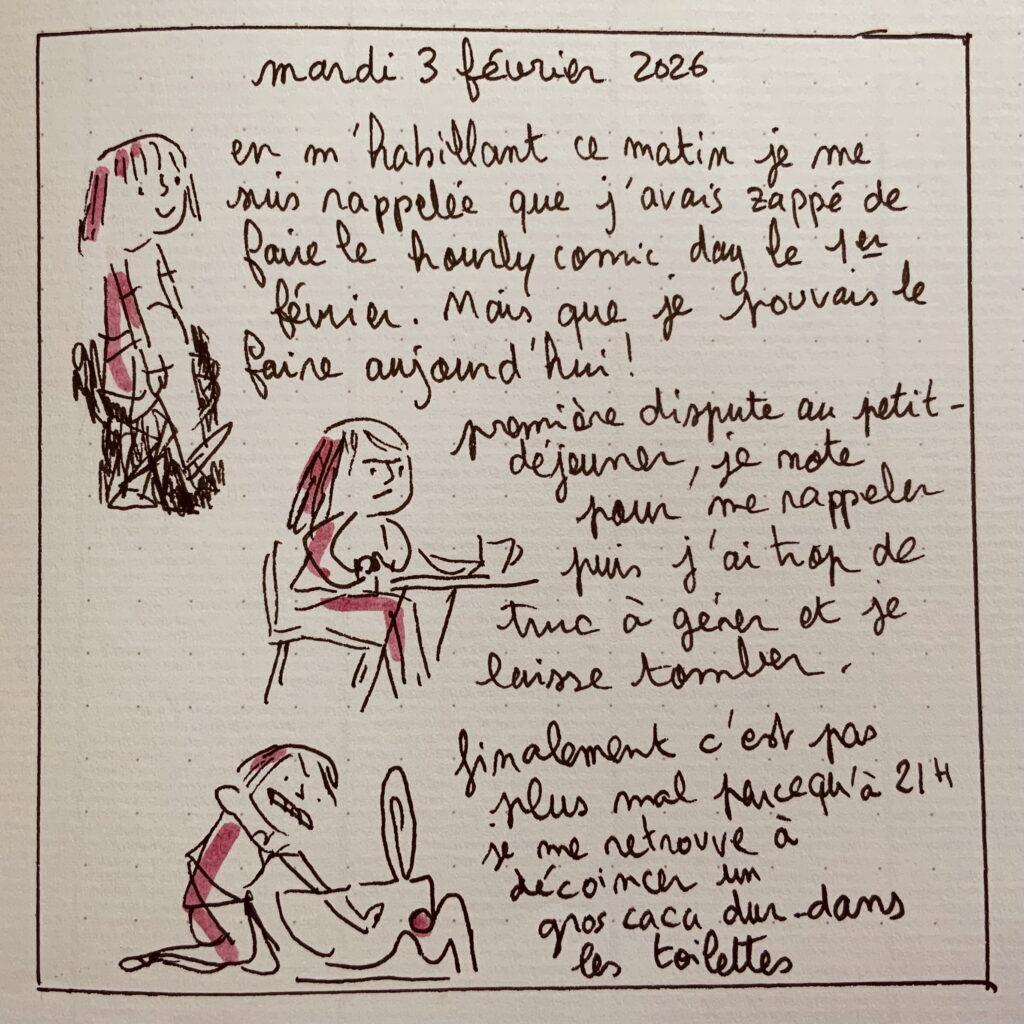 mardi 3 février 2026
en m'habillant ce matin je me
suis rappelée que j'avais zappé de
faire le hourly comic day le 1er
février. Mais que je pouvais le
faire aujourd'hui !
première dispute au petit-
déjeuner, je note
pour me rappeler
puis j'ai trop de
truc à gérer et je
laisse tomber.
finalement c'est pas
plus mal parcequ'à 21H
je me retrouve à
décoincer un
gros caca dur dans
les toilettes